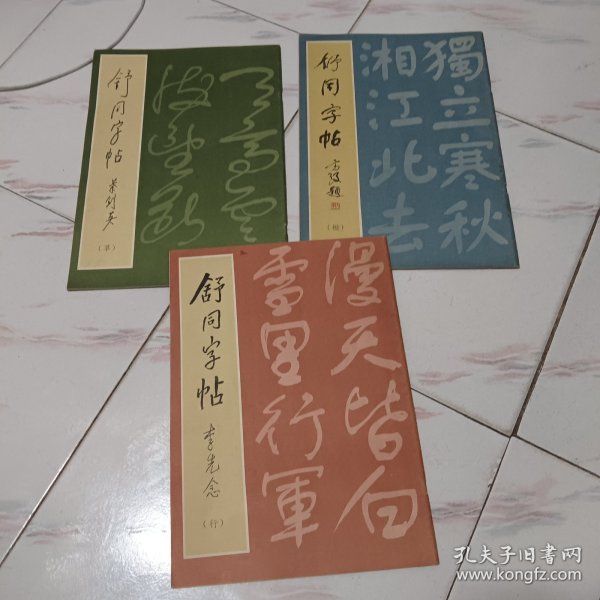 舒同字帖
(草)
舒同字帖
(楷)
獨立寒秋
湘江北去
舒同字帖
李先念
(行)
漫天皆白
雪里行軍
孔夫子旧书网
www.kongfz.com